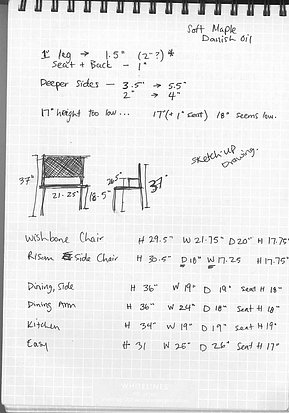 Soft Maple
Danish Oil
1" leg → 1.5" (2"?) *
Seat + Back - 1"
Deeper sides - 3.5" → 5.5"
2" → 4"
17" height too low... 17" (+1" seat) 18" seems low.
Sketch-up
Drawing.
37"
21.25"
18.5"
26.5"
37"
Wishbone Chair H 29.5" W 21.75" D 20" H 17.75"
Risom Side Chair H 30.5" D 18" W 17.25 H 17.75"
Dining, Side H 36" W 19" D 19" Seat H 18"
Dining Arm H 36" W 24" D 18" Seat H 18"
Kitchen H 34" W 19" D 19" Seat H 19"
Easy H 31 W 25" D 26" Seat H 17"
WHITELINES